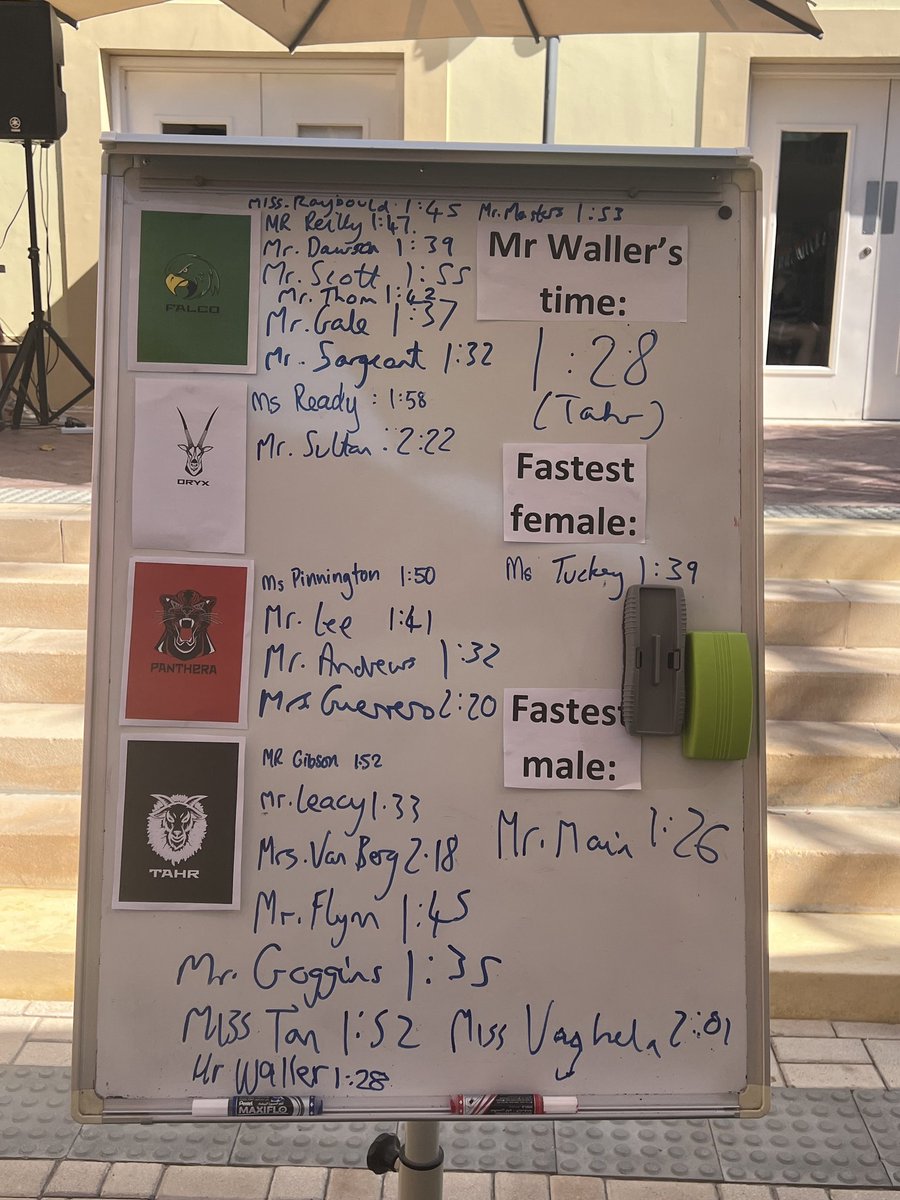 Miss. Raybould 1:45 Mr. Masters 1:53
MR Reilly 1:47
Mr. Dawson 1:39
Mr. Scott 1:55
Mr. Thom 1:42
Mr. Gale 1:37
Mr. Sargeant 1:32
FALCO
Mr Waller's
time:
1:28
(Tahr)
Ms Ready : 1:58
Mr. Sultan : 2:22
ORYX
Fastest
female:
Ms Tuckey 1:39
Ms Pinnington 1:50
Mr. Lee 1:41
Mr. Andrews 1:32
Mrs Guerrero 2:20
PANTHERA
Fastest
male:
Mr. Main 1:26
MR Gibson 1:52
Mr. Leacy 1:33
Mrs. Van Berg 2:18
TAHR
Mr. Flynn 1:45
Mr. Goggins 1:35
MISS Tan 1:52 Miss Vaghela 2:01
Mr Waller 1:28
Pentel
MAXIFLO